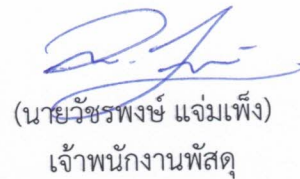 (นายวัชรพงษ์ แจ่มเพ็ง)
เจ้าพนักงานพัสดุ